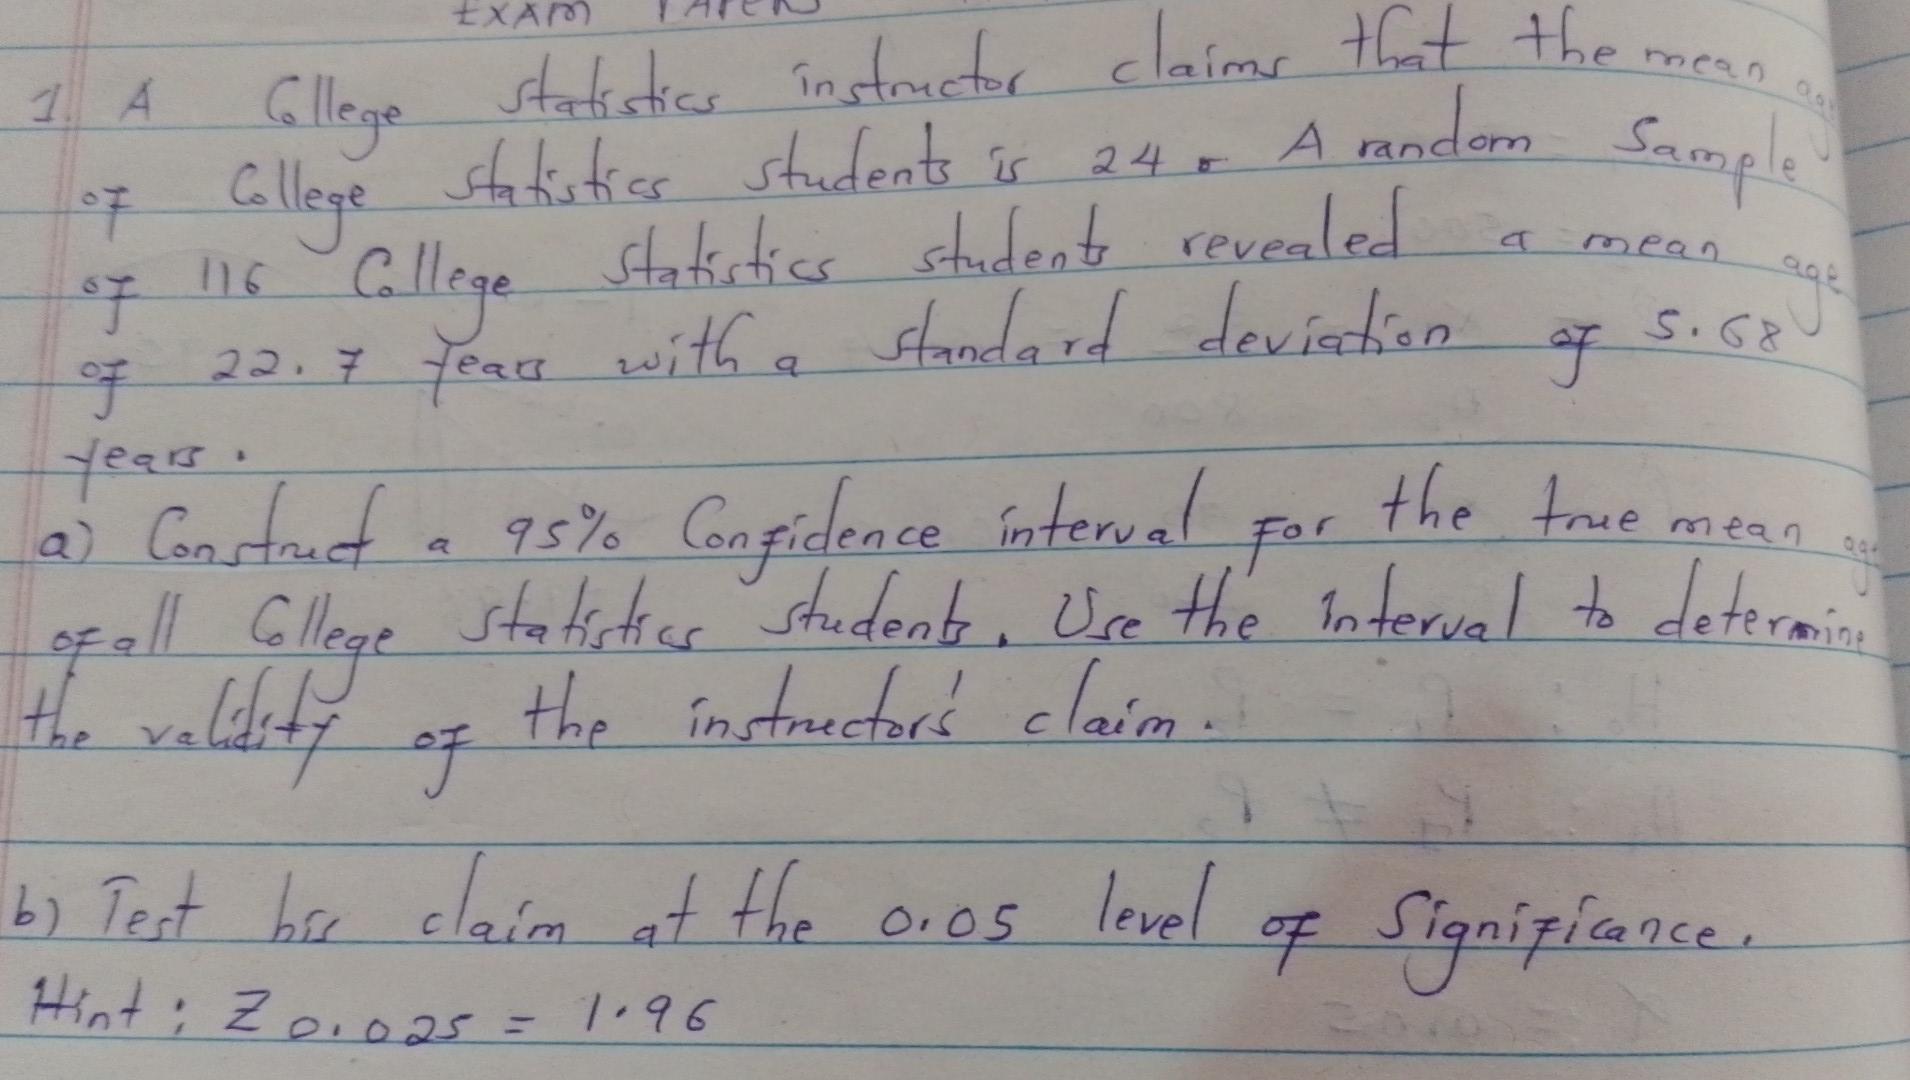 EXAM PAPER
1. A College statistics instructor claims that the mean age
of College statistics students is 24. A random Sample
of 116 College statistics students revealed a mean age
of 22.7 years with a standard deviation of 5.68
years.
a) Construct a 95% Confidence interval for the true mean age
of all College statistics students. Use the interval to determine
the validity of the instructor's claim.
b) Test his claim at the 0.05 level of Significance.
Hint: Z 0.025 = 1.96